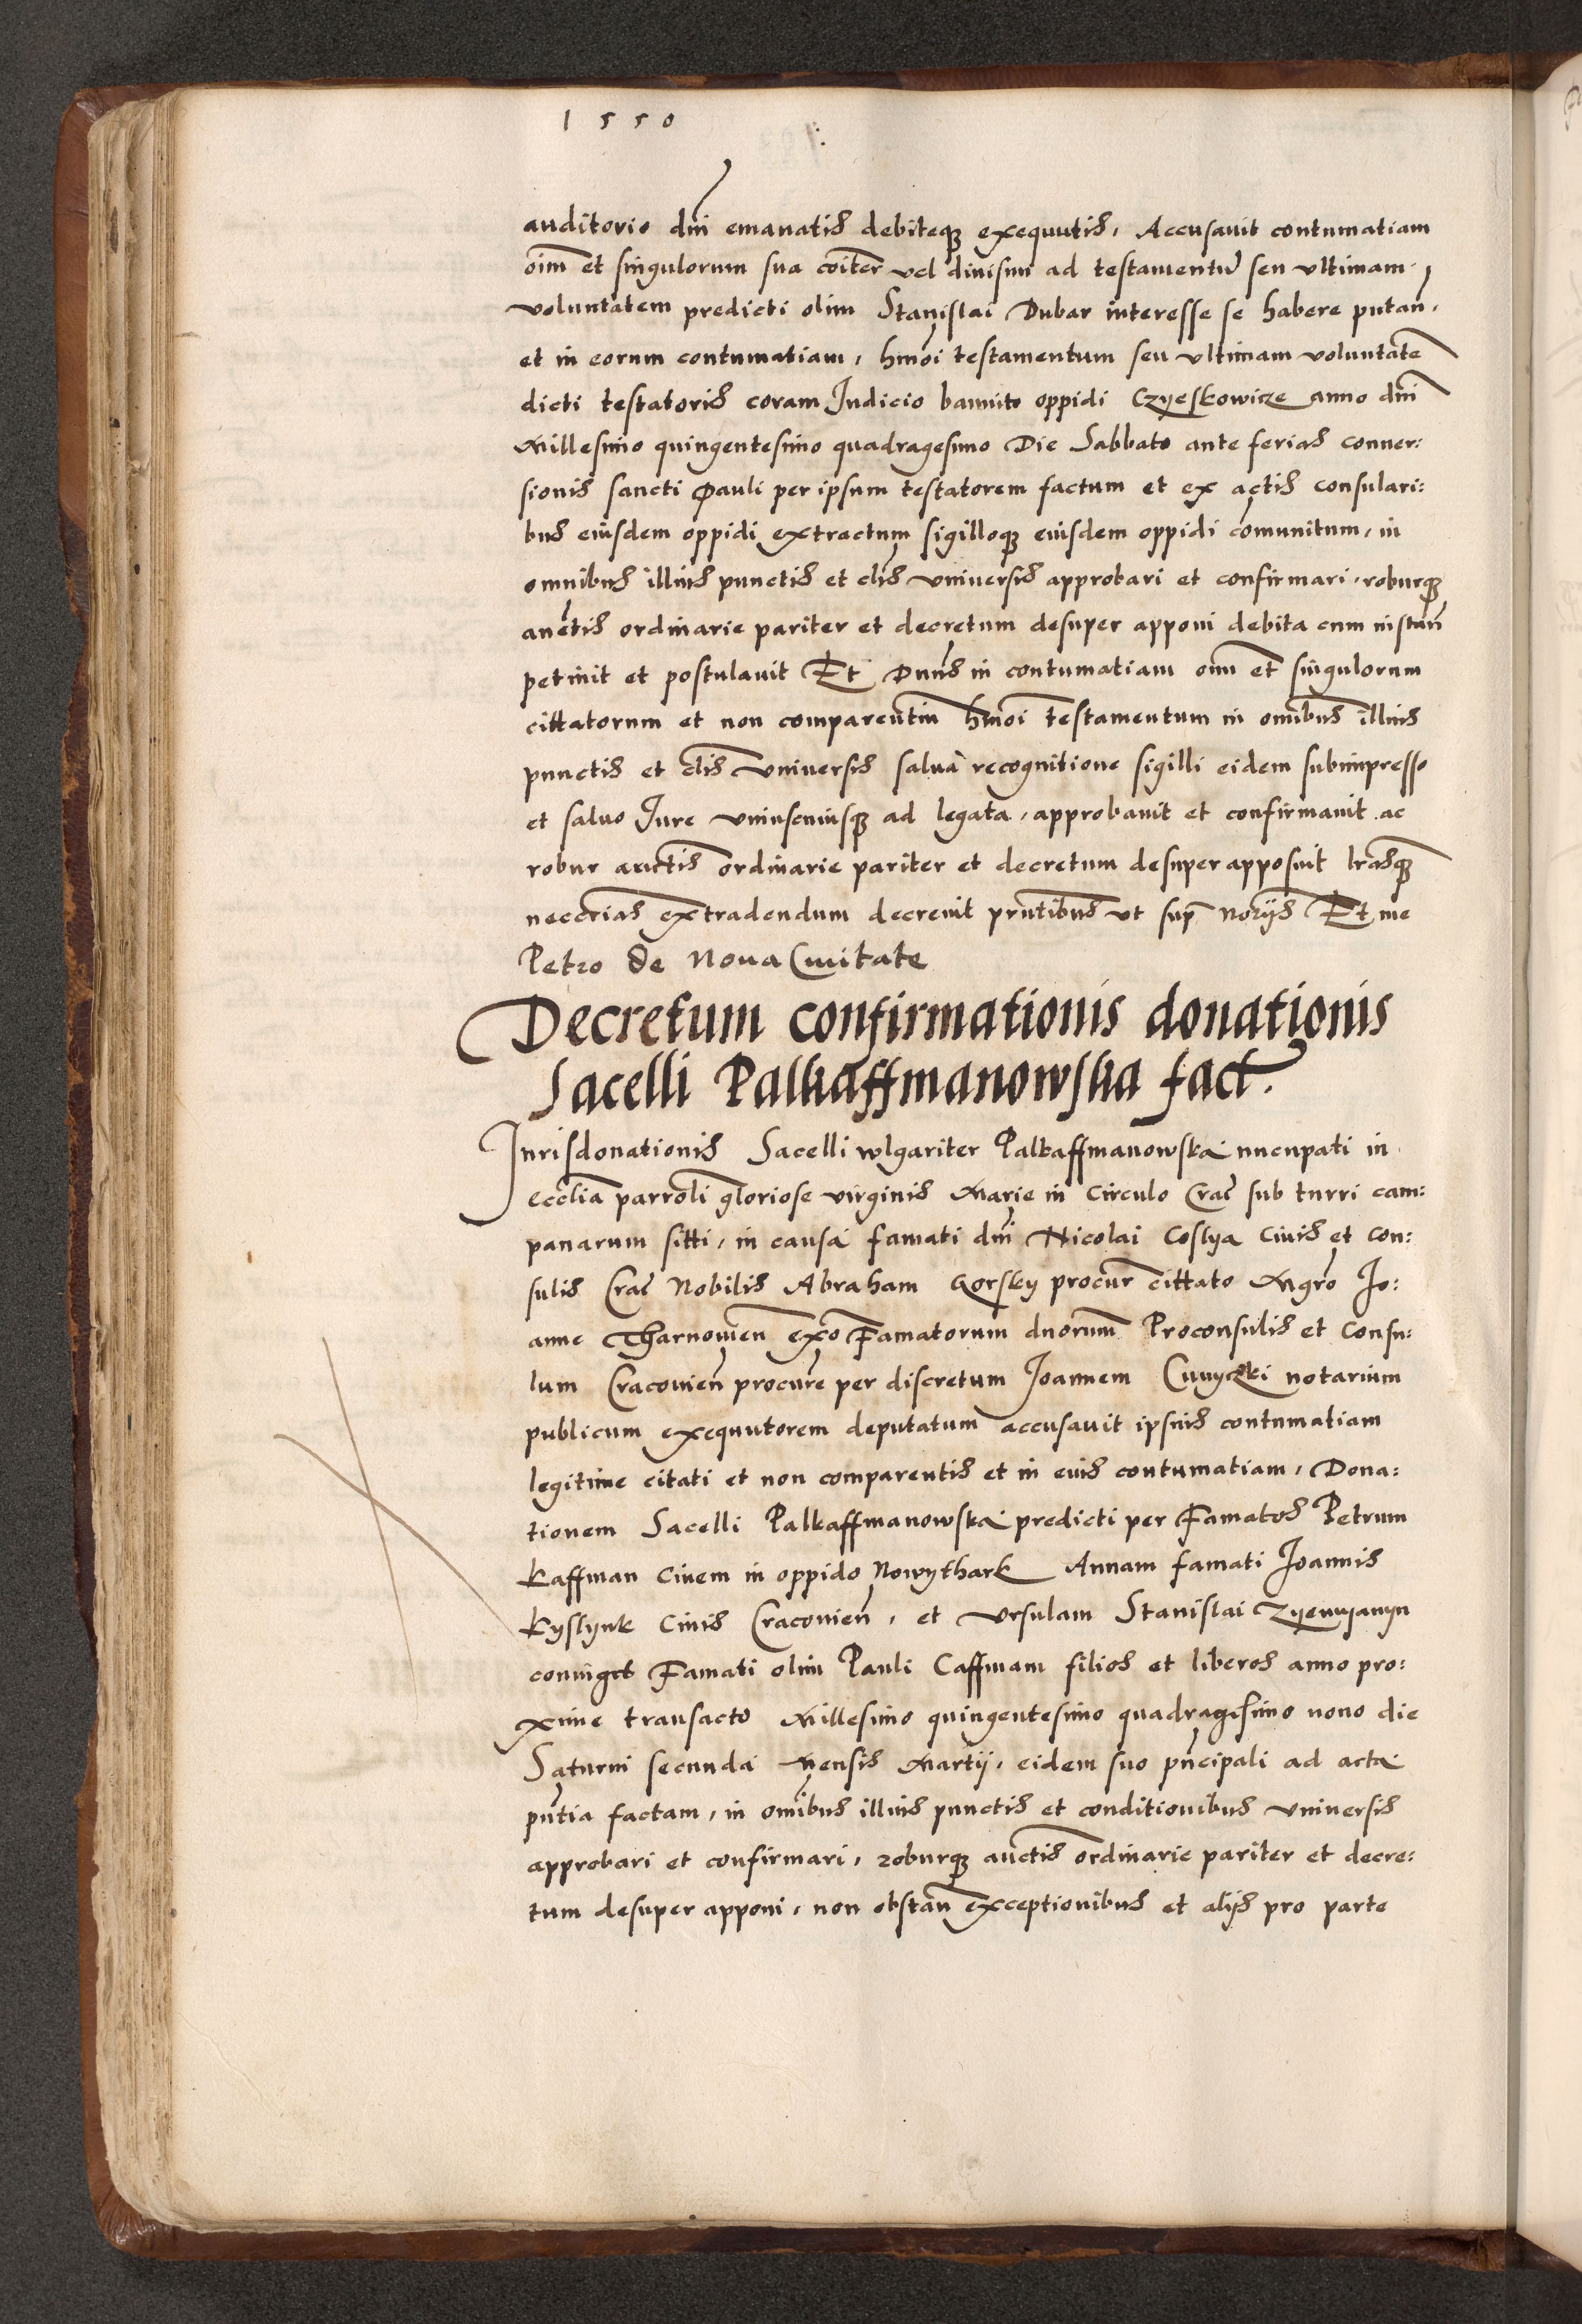 1550
auditorio dni emanatis debiteq; exequutis, Accusauit contumatiam
oim et singulorum sua coiter vel diuisim ad testamentu seu vltimam
voluntatem predicti olim Stanislai Dubar interesse se habere putan,
et in eorum contumatiam, hmoi testamentum seu vltimam voluntate
dicti testatoris coram Judicio bannito oppidi Czyeskowicze anno dni
Millesimo quingentesimo quadragesimo Die Sabbato ante ferias conuer:
sionis sancti Pauli per ipsum testatorem factum et ex actis consulari:
bus eiusdem oppidi extractum sigilloq; eiusdem oppidi comunitum, in
omnibus illius punctis et clis vniuersis approbari et confirmari, roburq;
auctis ordinarie pariter et decretum desuper apponi debita cum instan
petiuit et postulauit Et Dnus in contumatiam oim et singulorum
cittatorum et non comparentiu hmoi testamentum in omibus illius
punctis et clis vniuersis salua recognitione sigilli eidem subimpresso
et saluo Jure vniuscuiusq; ad legata, approbauit et confirmauit ac
robur auctis ordinarie pariter et decretum desuper apposuit lrasq;
neccrias extradendum decreuit pntibus vt sup notijs Et me
Petro de Noua Ciuitate
Decretum confirmationis donationis
Sacelli Palkaffmanowska fact.
Jurisdonationis Sacelli wlgariter Palkaffmanowska nucupati in
ecclia parroli gloriose virginis Marie in Circulo Crac sub turri cam:
panarum sitti, in causa famati dni Nicolai Coslya Ciuis et Con:
sulis Crac Nobilis Abraham Gorsky procur cittato Mgro Jo:
anne Tharnouien exo Famatorum dnorum Proconsulis et Consu:
lum Cracouien procure per discretum Joannem notarium
publicum exequutorem deputatum accusauit ipsius contumatiam
legitime citati et non comparentis et in eius contumatiam, Dona:
tionem Sacelli Palkaffmanowska predicti per Famatos Petrum
Kaffman Ciuem in oppido Nowythark Annam famati Joannis
Kyslynk Ciuis Cracouien, et Vrsulam Stanislai Zyemyanyn
coniuget Famati olim Pauli Caffmam filios et liberos anno pro:
xime transacto Millesimo quingentesimo quadragesimo nono die
Saturni secunda Mensis Martij, eidem suo pncipali ad acta
pntia factam, in omibus illius punctis et conditionibus vniuersis
approbari et confirmari, roburq; auctis ordinarie pariter et decre:
tum desuper apponi, non obstan exceptionibus et alijs pro parte